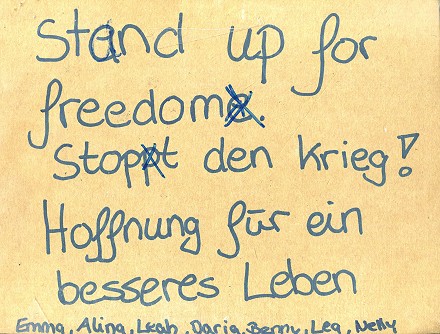 Stand up for
freedom.
Stoppt den Krieg!
Hoffnung für ein
besseres Leben
Emma, Alina, Leah, Daria, Benny, Lea, Nelly